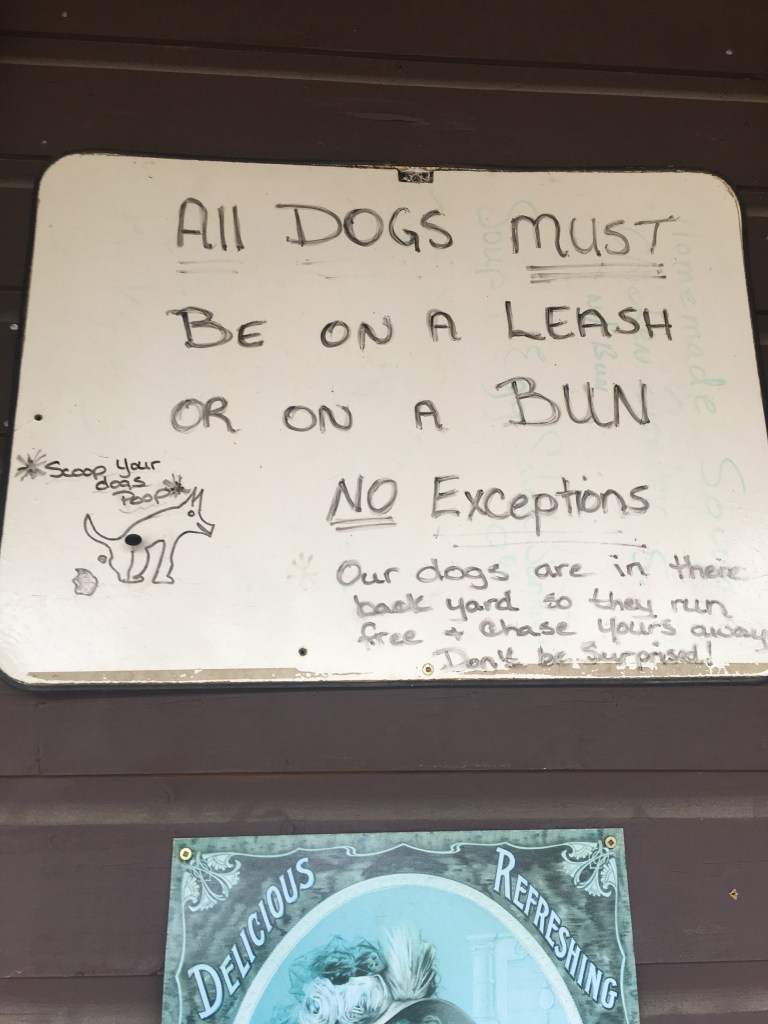 All DOGS MUST
BE ON A LEASH
OR ON A BUN
NO Exceptions
* Scoop Your
dogs
Poop *
Our dogs are in there
back yard so they run
free + chase yours away
Don't be Surprised!
Homemade Sou
Soup
Bun
DELICIOUS
REFRESHING